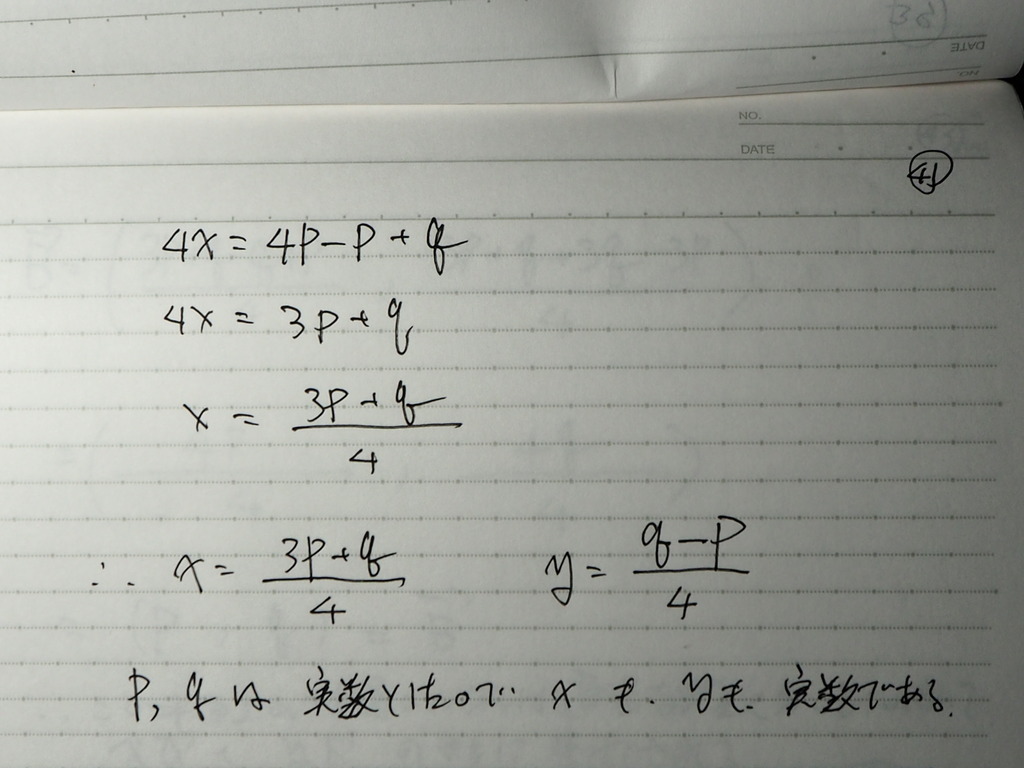 NO.
DATE
④
4x = 4p - p + q
4x = 3p + q
x = (3p + q)/4
∴ x = (3p + q)/4 y = (q - p)/4
p, q は 実数としたので x も. yも. 実数である.